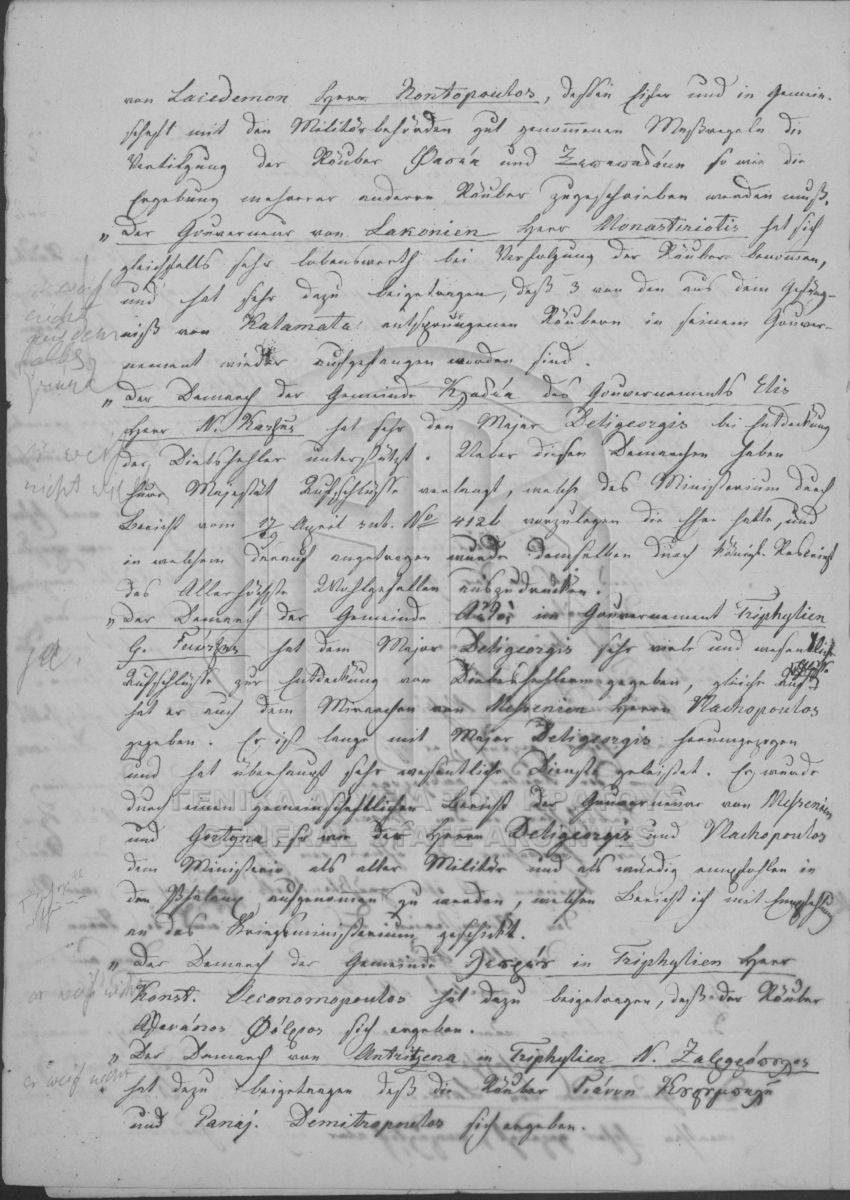 von Lacedemon Herr Kontopoulos, dessen Eifer und in Gemein-
schaft mit den Militärbehörden gut genommenen Maßregeln die
Vertilgung der Räuber und so wie die
Ergebung mehrerer anderen Räuber zugeschrieben werden muß.
„ Der Gouverneur von Lakonien Herr Monastiriotis hat sich
gleichfalls sehr lobenswerth bei Verfolgung der Räuber benommen,
und hat sehr dazu beigetragen, daß 3 von den aus dem Gefäng-
niß von Kalamata entsprungenen Räubern in seinem Gouver-
nement wieder aufgefangen worden sind.
„ Der Demarch der Gemeinde des Gouvernements Elis
Herr N. hat sehr den Major Deligeorgis bei Entdeckung
der Diebshehler unterstützt. Ueber diesen Demarchen haben
Eure Majestät Aufschlüsse verlangt, welche das Ministerium durch
Bericht vom 17/29 April sub. No 4126 vorzulegen die Ehre hatte, und
in welchem darauf angetragen wurde demselben durch königl. Rescript
das Allerhöchste Wohlgefallen auszudrücken.
„ Der Demarch der Gemeinde im Gouvernement Triphylien
G. hat dem Major Deligeorgis sehr viele und wesentliche
Aufschlüsse zur Entdeckung von Diebshehlern gegeben, gleiche
hat er auch dem Mirarchen von Messenien Herrn Vlachopoulos
gegeben. Er ist lange mit Major Deligeorgis herumgezogen
und hat überhaupt sehr wesentliche Dienste geleistet. Er wurde
durch einen gemeinschaftlichen Bericht der Gouverneure von Messenien
und Gortyna, so wie der Herrn Deligeorgis und Vlachopoulos
dem Ministerio als alter Militär und als würdig empfohlen in
den Phalanx aufgenommen zu werden, welchen Bericht ich mit Empfehlung
an das Kriegsministerium geschickt.
„ Der Demarch der Gemeinde in Triphylien Herr
Konst. Oeconomopoulos hat dazu beigetragen, daß der Räuber
sich ergeben.
„ Der Demarch von Antritzena in Triphylien N.
hat dazu beigetragen daß die Räuber Γιάννη
und Panaj. Demitropoulos sich ergeben.
er weiß
nicht
ja!
er weiß nicht
er weiß nicht
ΓΕΝΙΚΑ ΑΡΧΕΙΑ ΤΟΥ ΚΡΑΤΟΥΣ
GENERAL STATE ARCHIVES